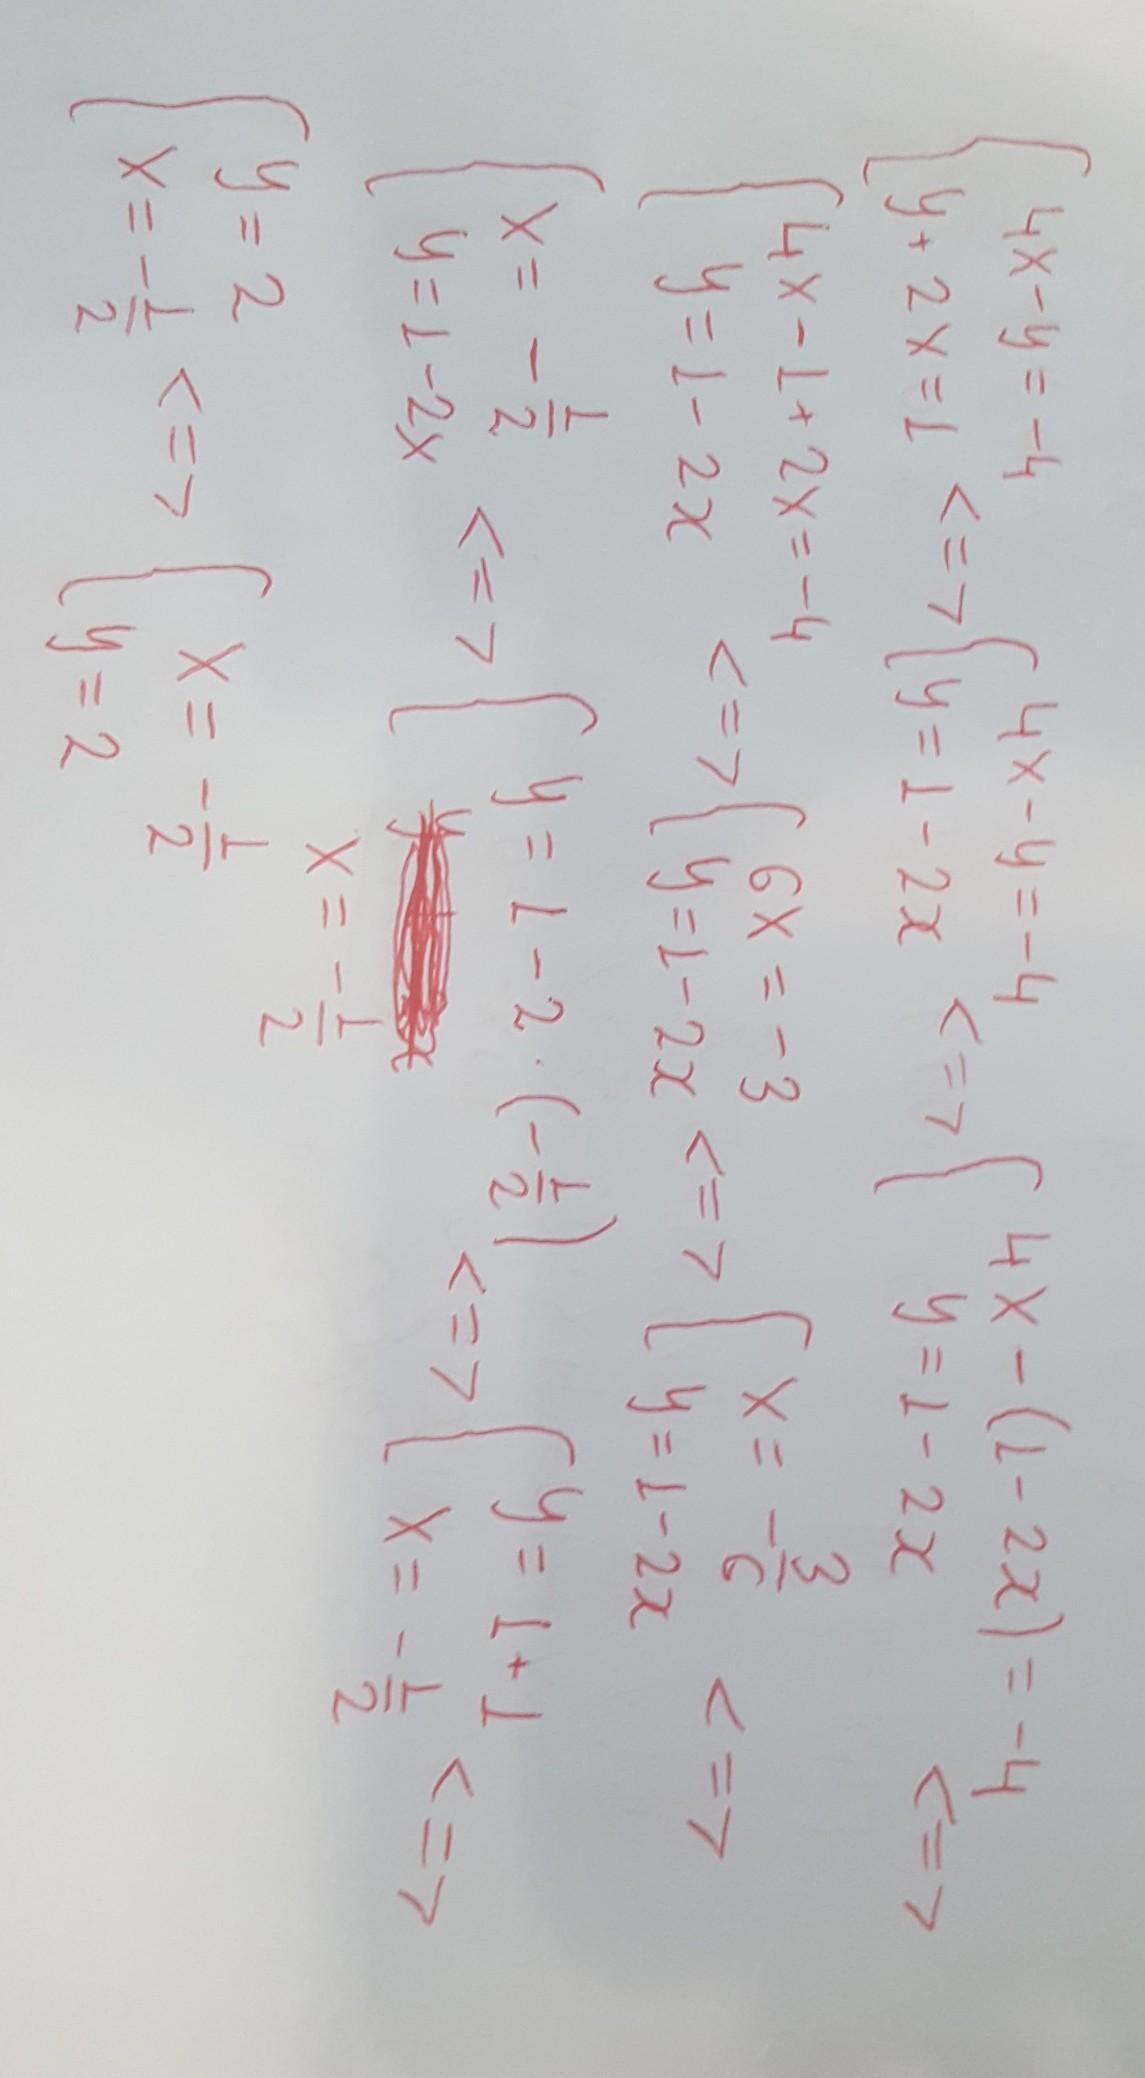 { 4x - y = -4
y + 2x = 1 <=> { 4x - y = -4
y = 1 - 2x <=> { 4x - (1 - 2x) = -4
y = 1 - 2x <=>
{ 4x - 1 + 2x = -4
y = 1 - 2x <=> { 6x = -3
y = 1 - 2x <=> { x = -3/6
y = 1 - 2x <=>
{ x = -1/2
y = 1 - 2x <=> { y = 1 - 2 · (-1/2)
x = -1/2 <=> { y = 1 + 1
x = -1/2 <=>
{ y = 2
x = -1/2 <=> { x = -1/2
y = 2